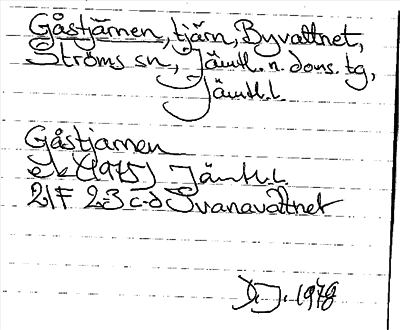 Gåstjärnen, tjärn, Byvattnet,
Ströms sn, Jämtl. n. doms. tg,
Jämtl.l.
Gåstjärnen
ek (1975) Jämtl.l.
21F 2-3 c-d Svanavattnet
1978